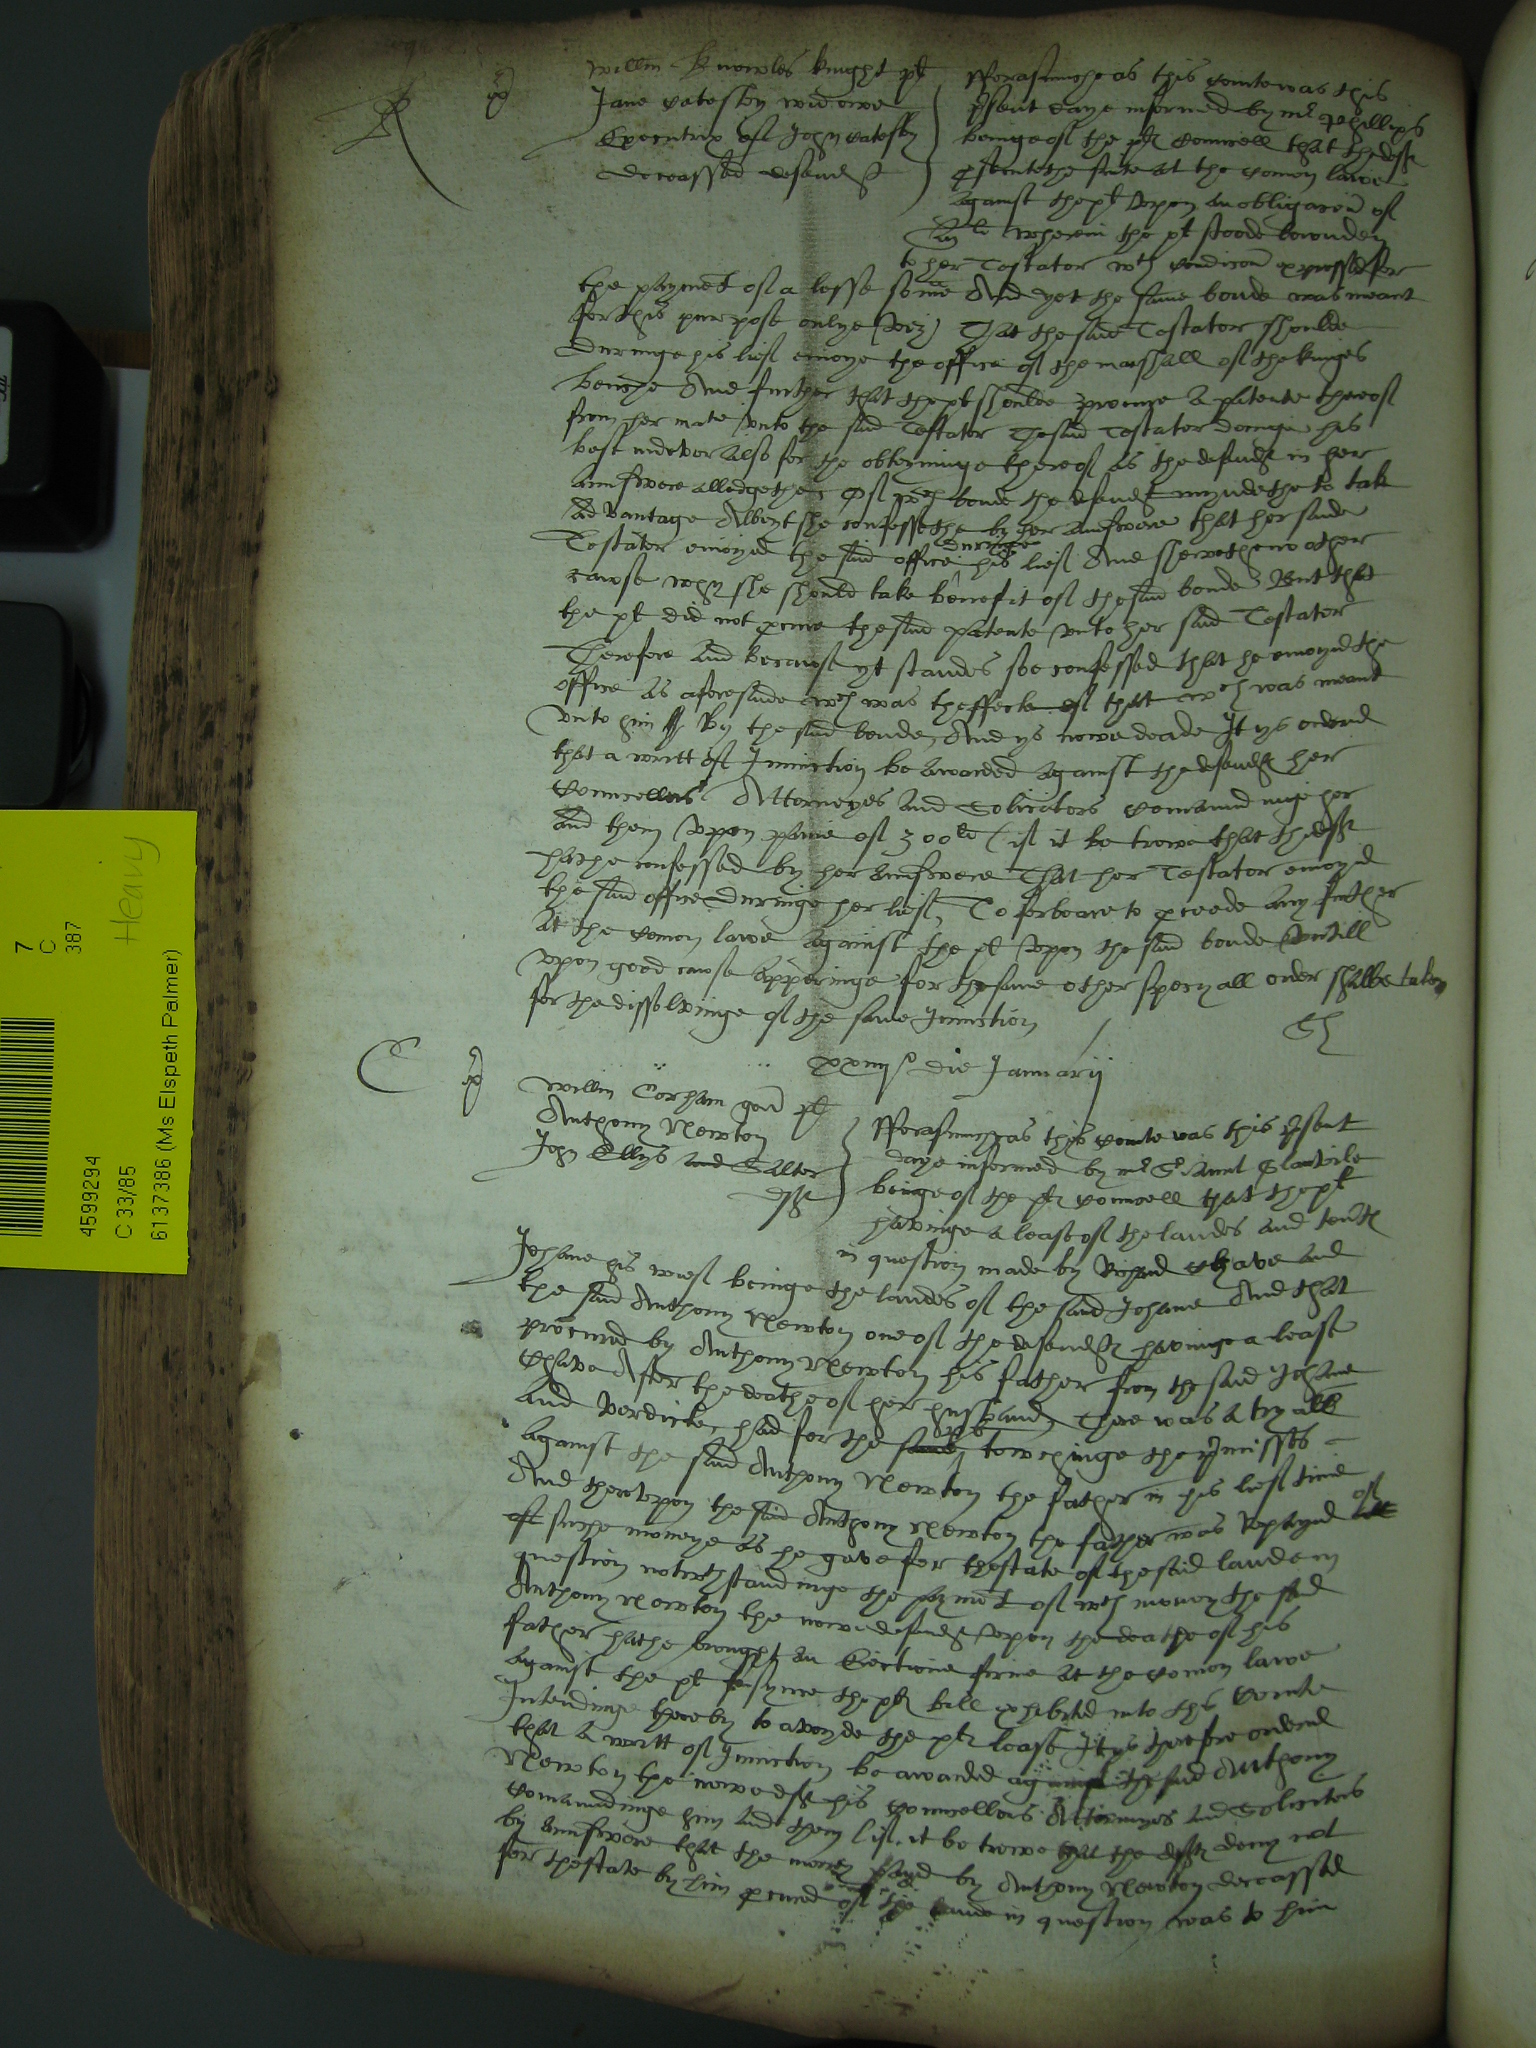 Willm Knowles knight pl
Jane Catesby widowe
Executrix of John Catesby
deceassed defendt
Fforasmuche as this Courte was this
p̱sent daye informed by mr Phillipps
beinge of the pls Councell that the deft
p̱secutethe sute at the Comon lawe
against the pl vpon an obligacon of
wherein the pl stoode bounden
to her Testator wth condicon expressed for
the paymet of a lesse some And yet the same bonde was meant
for this purpose onlye (viz) That the said Testator shoulde
duringe his lief enioye the office of the marshall of the kinges
benche And further that the pl shoulde procure a patente thereof
from her matie vnto the said Testator The said Testator doinge his
best indevor also for the obteininge thereof as the defendt in her
Aunswere alledgethe, Of wch bonde the defendt myndethe to take
Advantage Albeyt she confessethe by her aunswere that her saide
Testator enioyed the said office duringe his lief And shewethe no other
cawse why she should take benefit of the said bonde But that
the pl did not p̱cure the said patente vnto her said Testator
Therefore and because yt standes soe confessed that he enioyed the
office as aforesaide wch was theffecte of that wch was meant
vnto him By the said bonde, And ys nowe deade It ys ordered
that a writt of Iniunction be awarded against the defendt her
Councellors Attorneyes and Solicitors Comaundinge her
and them vpon paine of 300li (if it be trewe that the deft
hathe confessed by her aunswere That her Testator enioyed
the said office duringe her lief, To forbeare to p̱ceede any further
at the Comon lawe against the pl vpon the said bonde vntill
vpon good cawse apperinge for the same other specyall order shalbe taken
for the dissolvinge of the same Iniunction
xxiiijo die Januarij
Willm Corham gen pl
Anthony Newton
John Ellys and Salter
defts
Fforasmuch as this Courte was this p̱sent
daye informed by mr Seriaunt Glanvile
beinge of the pls Councell that the pl
havinge a lease of the landes and tents
in question made by Richard Chave and
Johane his wief beinge the landes of the said Johane And that
the said Anthony Newton one of the defendts havinge a lease
procured by Anthony Newton his father from the said Johane
Chave After the deathe of her husband, There was a tryall
and verdicte, had for the pls towchinge the p̱misses
against the said Anthony Newton the father in his lief time
And therevpon the said Anthony Newton the father was repayed of
suche moneye as he gave for thestate of the said lande in
question notwthstandinge the paymet of wch money the said
Anthony Newton the nowe defendt vpon the deathe of his
father hathe brought an Eiectione firme at the Comon lawe
against the pl synce the pls bill exhibited into this Courte
Intendinge thereby to avoyde the pls lease It ys therefore ordered
that a writt of Iniunction be awarded against the said Anthony
Newton the nowe deft his Councellors Attorneyes and Solicitors
Comaundinge him and them (if it be trewe that the defts deny not
by aunswere that the money payd by Anthony Newton deceassed
for thestate by him p̱cured of the lande in question was to him
7
C
387
Heavy
4599294
C 33/85
6137386 (Ms Elspeth Palmer)